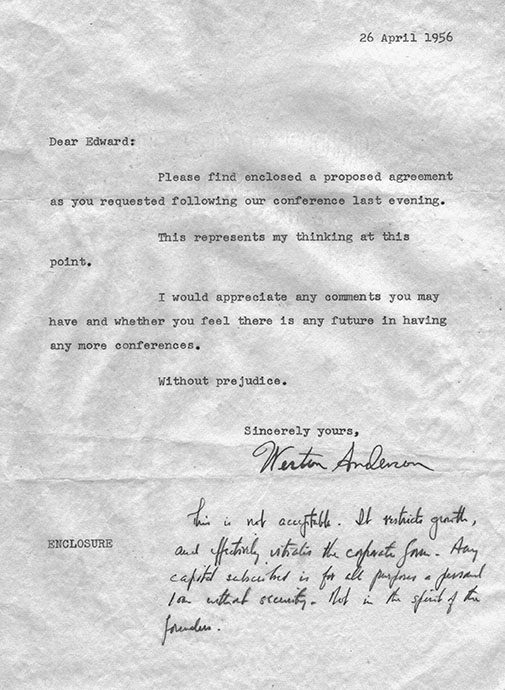 26 April 1956
Dear Edward:
Please find enclosed a proposed agreement
as you requested following our conference last evening.
This represents my thinking at this
point.
I would appreciate any comments you may
have and whether you feel there is any future in having
any more conferences.
Without prejudice.
Sincerely yours,
Weston Anderson
ENCLOSURE
This is not acceptable. It restricts growth,
and effectively vitiates the corporate form. Any
capital subscribed is for all purposes a personal
loan without security. Not in the spirit of the
founders.